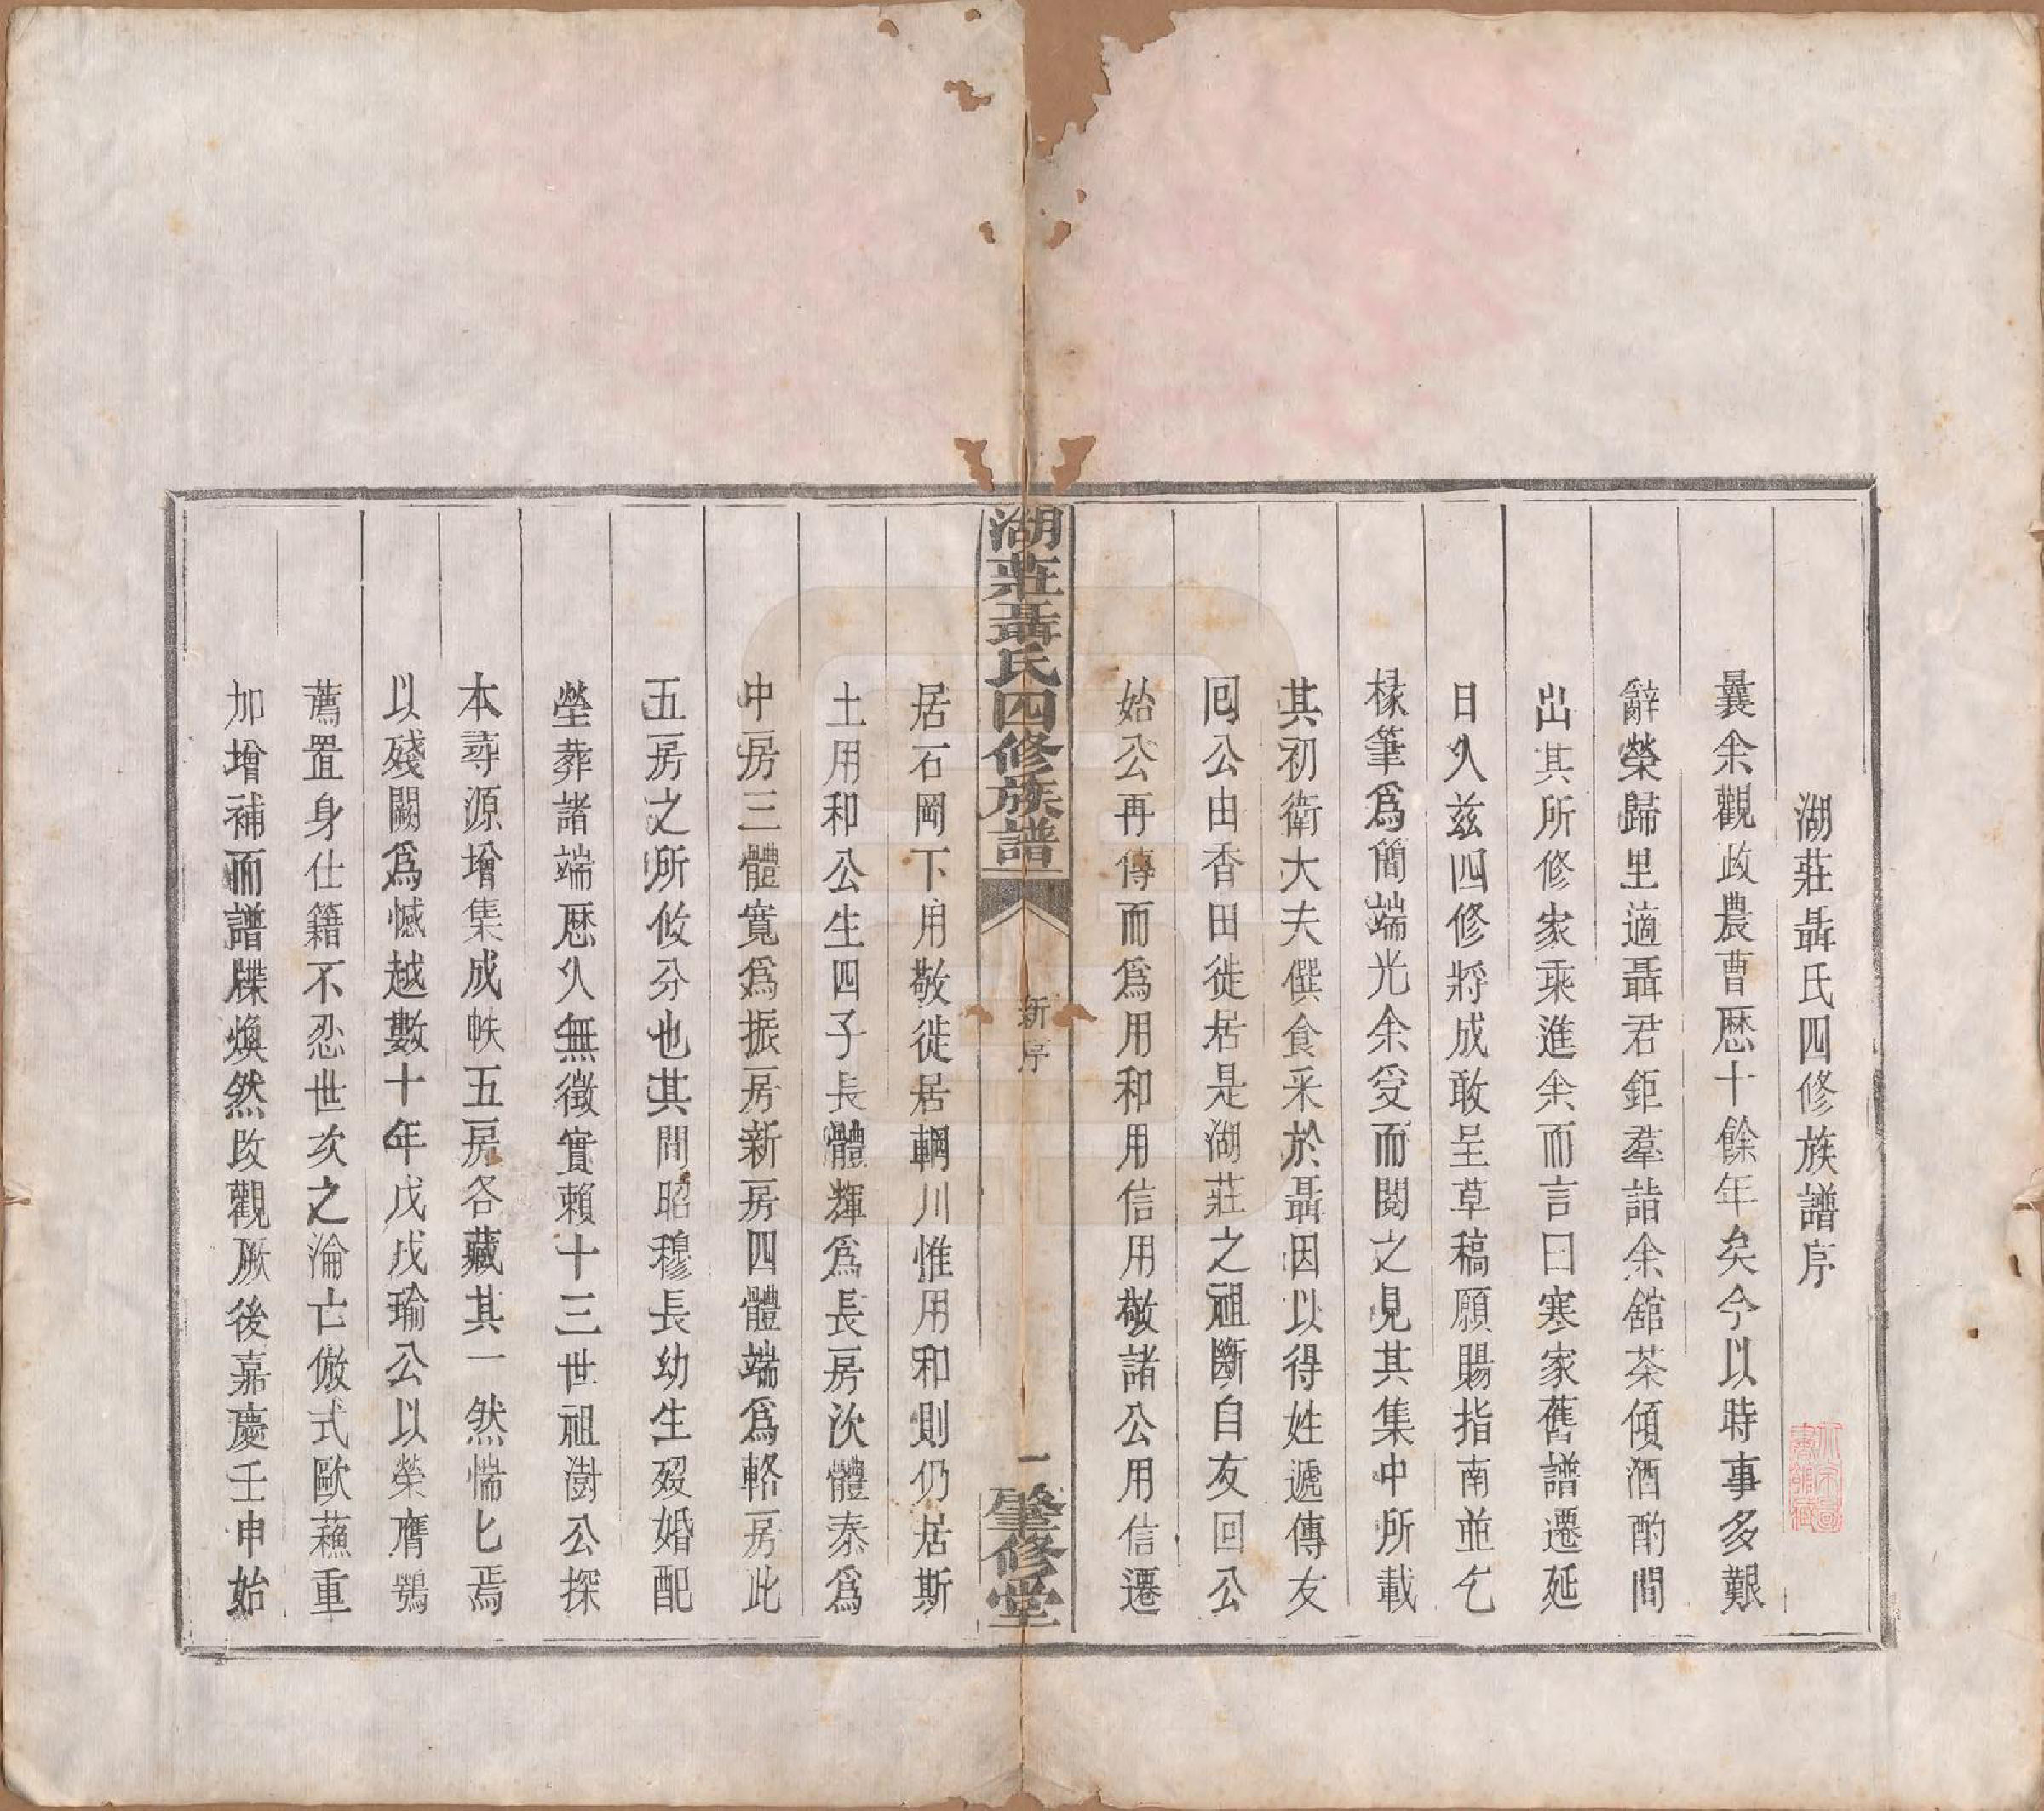 湖莊聶氏四修族譜序
曩余觀政農曹厯十餘年矣今以時事多艱
辭榮歸里適聶君鉅羣詣余舘茶傾酒酌間
出其所修家乘進余而言曰寒家舊譜遷延
日久兹四修將成敢呈草稿願賜指南並乞
椽筆爲簡端光余受而閱之見其集中所載
其初衛大夫僎食采於聶因以得姓遞傳友
囘公由香田徙居是湖莊之祖斷自友回公
始公再傳而爲用和用信用敬諸公用信遷
湖莊聶氏四修族譜
新序
一
肇修堂
居石岡下用敬徙居輞川惟用和則仍居斯
土用和公生四子長體輝爲長房次體泰爲
中房三體寬爲振房新房四體端爲輅房此
五房之所攸分也其間昭穆長幼生歿婚配
塋葬諸端厯久無徵實賴十三世祖澍公探
本尋源增集成帙五房各藏其一然惴匕焉
以殘闕爲憾越數十年戊戌瑜公以榮膺鶚
薦置身仕籍不忍世次之淪亡倣式歐蘓重
加增補而譜牒煥然改觀厥後嘉慶壬申始